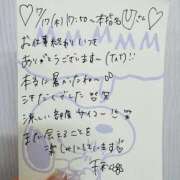 ♡ 7/17(木) 17:50〜 本指名 Uさん ♡
お仕事終わりに
ありがとうございます〜(T^T)!!
本当に暑かったね〜
汗だくでした
涼しい部屋 サイコー!!
また会えることを
楽しみにしています